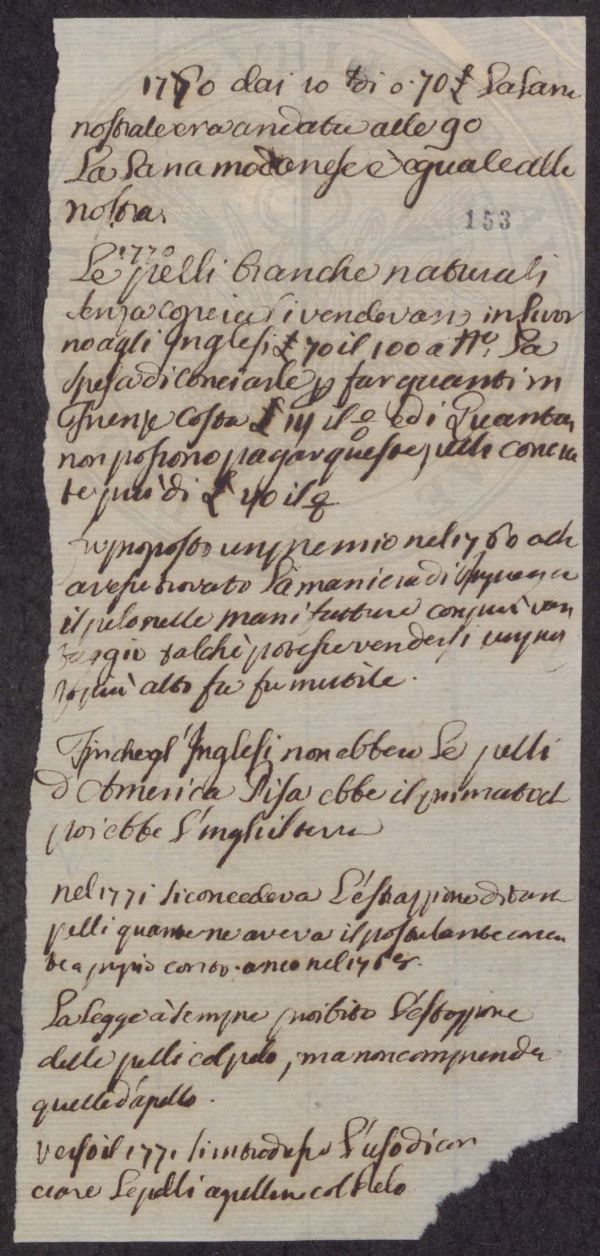 1760 dai 10 di 0. 70 £ La Lana
nostrale era andata alle 90
La Lana modonese è eguale alla
nostra.
153
1770
Le pelli bianche naturali
senza concia si vendevano in Livor
no agli Inglesi £ 70 il 100 a
La
spesa di conciarle p far guanti in
Firenze Costa £ 14 il % ed i Guantai
non possono pagar queste pelli concia
te più di £ 40 il %
Fu proposto un premio nel 1760 a chi
avesse trovato La maniera di
il pelo nelle manifatture con più van
taggio talchè potesse vendersi
più alto fu inutile.
Finche gl'Inglesi non ebbero Le pelli
d'America Pisa ebbe il primato ch
poi ebbe L'inghilterra
nel 1771 Si concedeva L'estrazzione di tante
pelli quante ne aveva il postulante concia
te a proprio conto. anco nel 1768.
La Legge à sempre proibito L'estrazzione
delle pelli col pelo, ma non comprende
quelle d'apello.
verso il 1771 s'introdusse L'uso di con
ciare Le pelli agnelline col Pelo